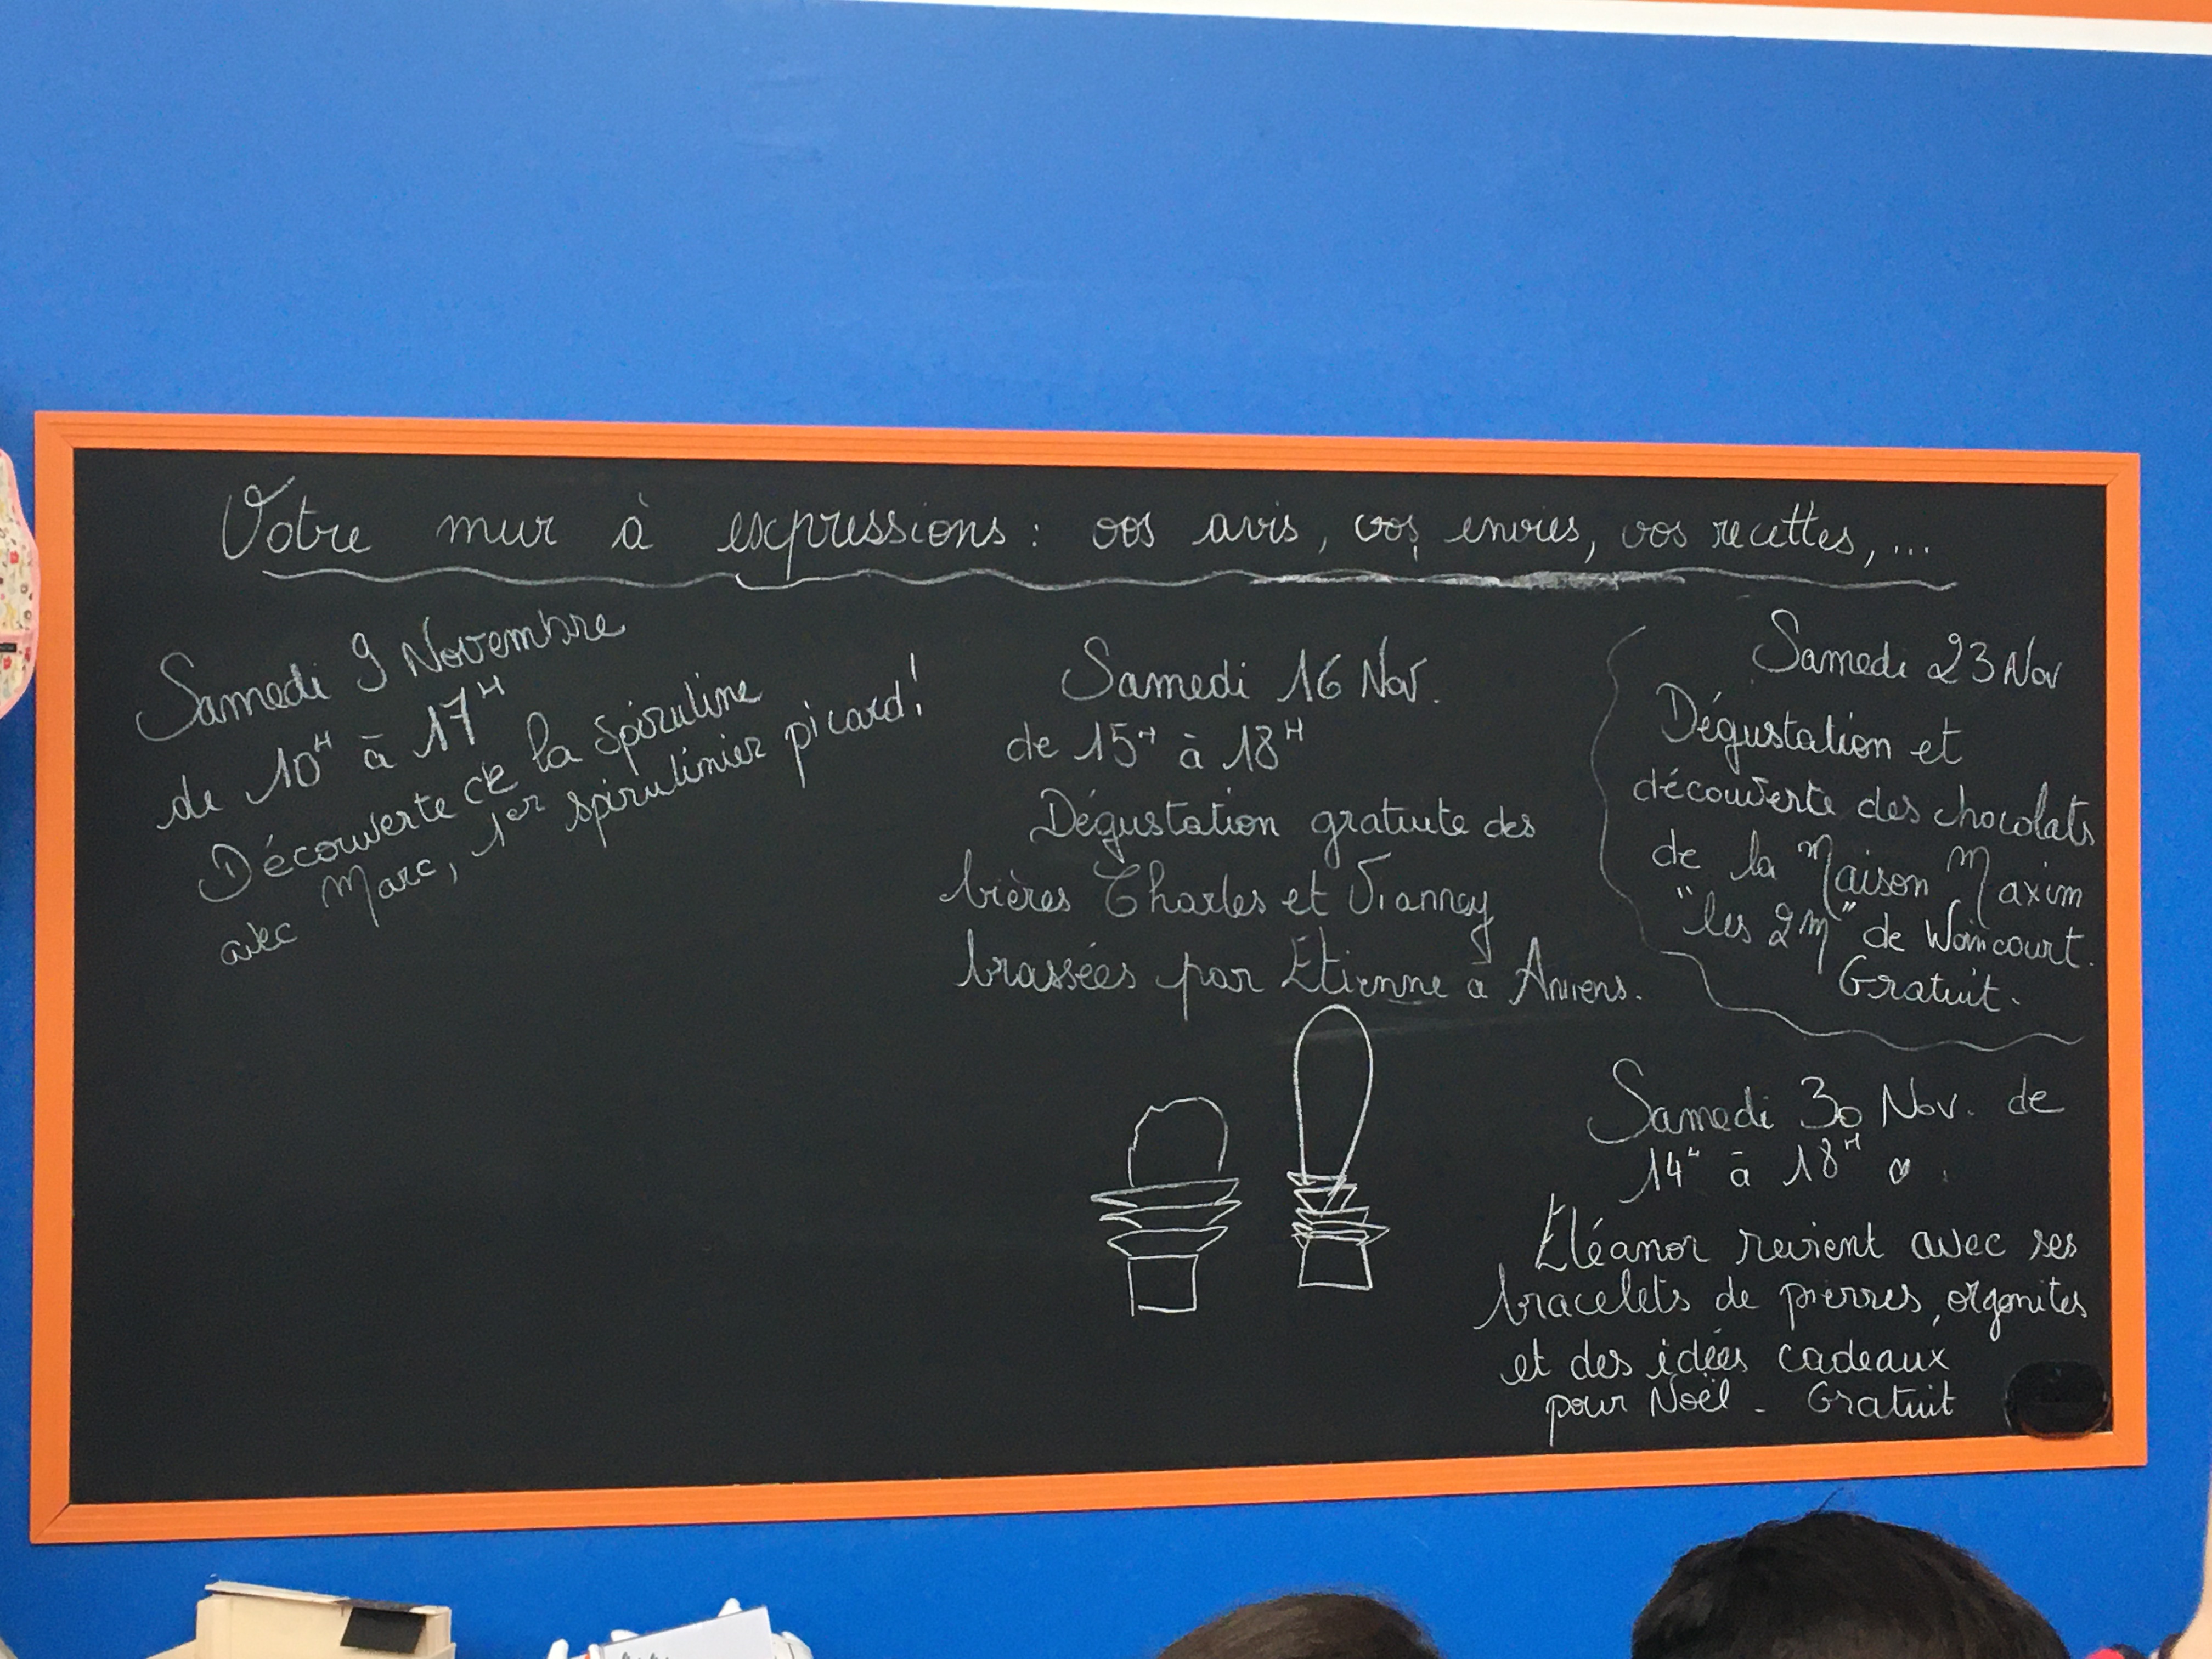 Votre mur à expressions : vos avis, vos envies, vos recettes, ...
Samedi 9 Novembre
de 10H à 17H
Découverte de la spiruline
avec Marc, 1er spirulinier picard!
Samedi 16 Nov.
de 15H à 18H
Dégustation gratuite des
bières Charles et Vianney
brassées par Etienne à Amiens.
Samedi 23 Nov
Dégustation et
découverte des chocolats
de la Maison Maxim
"les 2M" de Woincourt.
Gratuit.
Samedi 30 Nov. de
14H à 18H
Eléanor revient avec ses
bracelets de pierres, orgonites
et des idées cadeaux
pour Noël - Gratuit